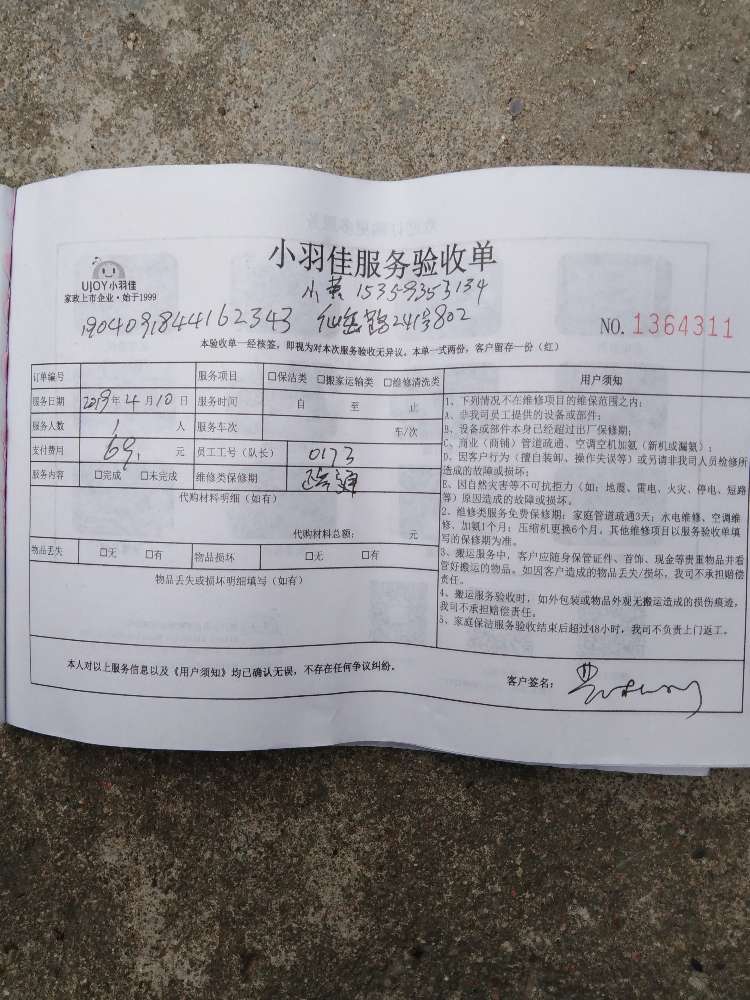 小羽佳服务验收单
UJOY小羽佳
家政上市企业·始于1999
小黄 15359353134
1904091844162343 仙岳路241号802
NO. 1364311
本验收单一经核签，即视为对本次服务验收无异议，本单一式两份，客户留存一份（红）
订单编号 服务项目 □保洁类 □搬家运输类 □维修清洗类
服务日期 2019年4月10日 服务时间 自 至 止
服务人数 1 人 服务车次 车/次
支付费用 69 元 员工工号（队长） 0173
服务内容 □完成 □未完成 维修类保修期
代购材料明细（如有）
代购材料总额： 元
物品丢失 □无 □有 物品损坏 □无 □有
物品丢失或损坏明细填写（如有）
用户须知
1、下列情况不在维修项目的维保范围之内：
A、非我司员工提供的设备或部件；
B、设备或部件本身已经超过出厂保修期；
C、商业（商铺）管道疏通、空调空机加氨（新机或漏氨）；
D、因客户行为（擅自装卸、操作失误等）或另请非我司人员检修所
造成的故障或损坏；
E、因自然灾害等不可抗拒力（如：地震、雷电、火灾、停电、短路
等）原因造成的故障或损坏。
2、维修类服务免费保修期：家庭管道疏通3天；水电维修、空调维
修、加氨1个月；压缩机更换6个月，其他维修项目以服务验收单填
写的保修期为准。
3、搬运服务中，客户应随身保管证件、首饰、现金等贵重物品并看
管好搬运的物品。如因客户造成的物品丢失/损坏，我司不承担赔偿
责任。
4、搬运服务验收时，如外包装或物品外观无搬运造成的损伤痕迹，
我司不承担赔偿责任。
5、家庭保洁服务验收结束后超过48小时，我司不负责上门返工。
本人对以上服务信息以及《用户须知》均已确认无误，不存在任何争议纠纷。
客户签名：